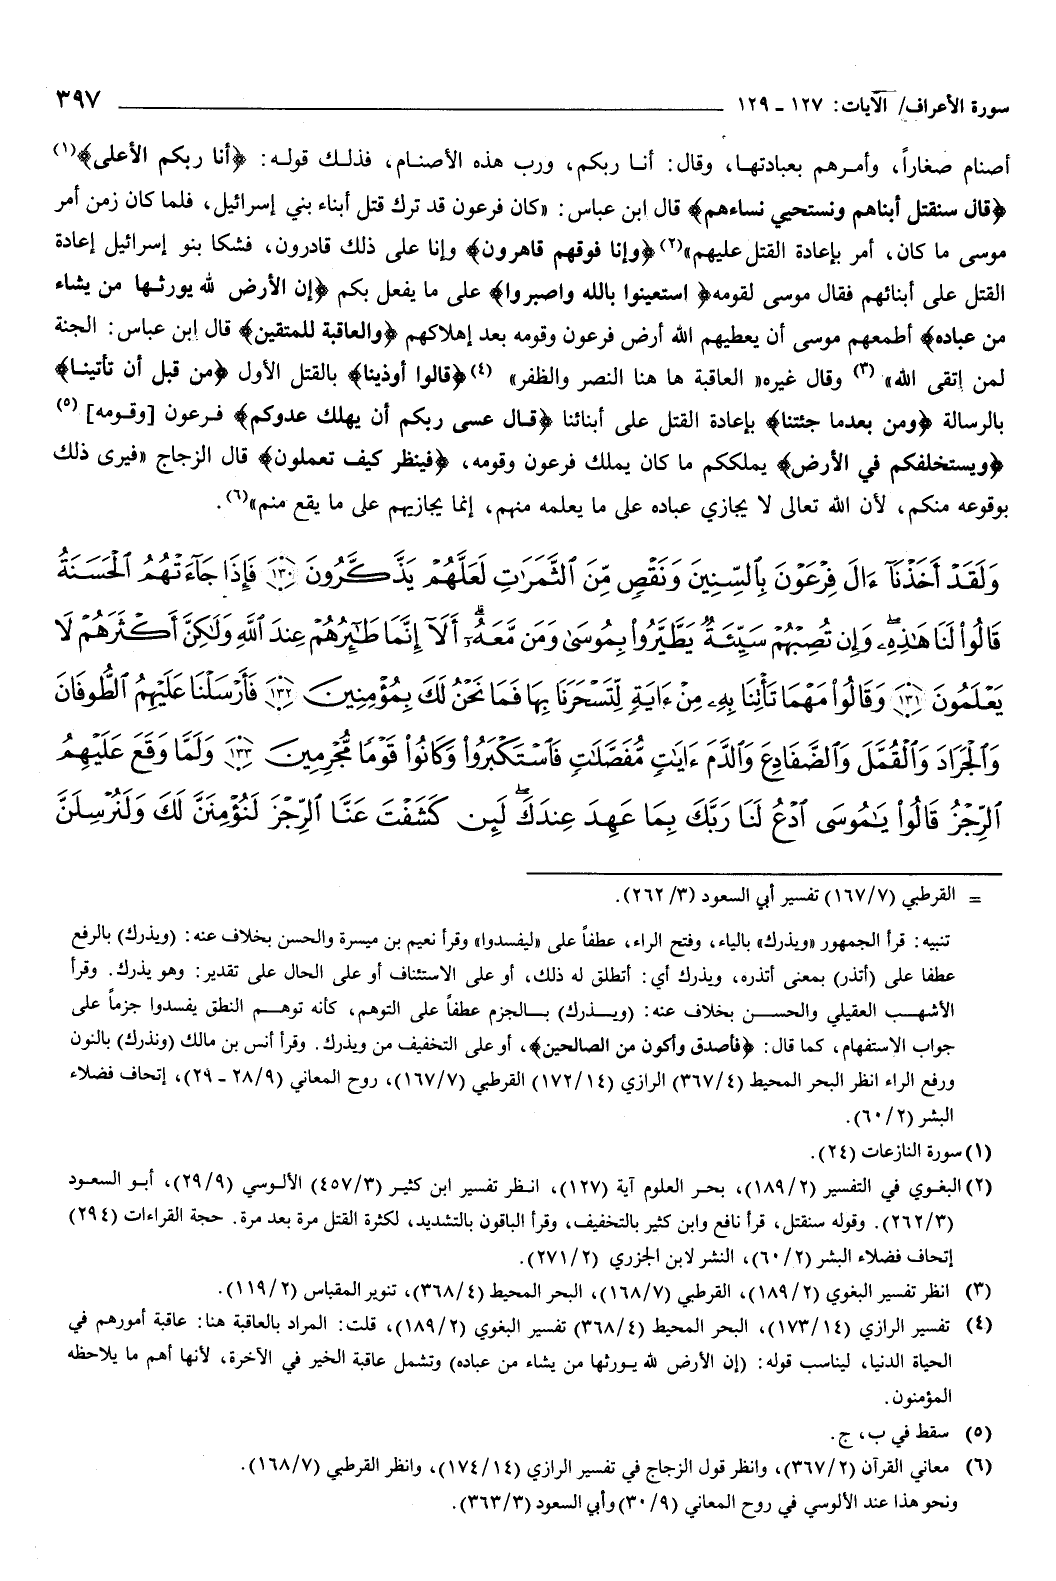 سورة الأعراف/ الآيات: ١٢٧ - ١٢٩ ٣٩٧
أصنام صغاراً، وأمرهم بعبادتها، وقال: أنا ربكم، ورب هذه الأصنام، فذلك قوله: ﴿أنا ربكم الأعلى﴾(١)
﴿قال سنقتل أبناهم ونستحيي نساءهم﴾ قال ابن عباس: «كان فرعون قد ترك قتل أبناء بني إسرائيل، فلما كان زمن أمر
موسى ما كان، أمر بإعادة القتل عليهم»(٢) ﴿وإنا فوقهم قاهرون﴾ وإنا على ذلك قادرون، فشكا بنو إسرائيل إعادة
القتل على أبنائهم فقال موسى لقومه﴿ استعينوا بالله واصبروا﴾ على ما يفعل بكم ﴿إن الأرض لله يورثها من يشاء
من عباده﴾ أطمعهم موسى أن يعطيهم الله أرض فرعون وقومه بعد إهلاكهم ﴿والعاقبة للمتقين﴾ قال ابن عباس: الجنة
لمن إتقى الله» (٣) وقال غيره« العاقبة ها هنا النصر والظفر» (٤) ﴿قالوا أوذينا﴾ بالقتل الأول ﴿من قبل أن تأتينا﴾
بالرسالة ﴿ومن بعدما جئتنا﴾ بإعادة القتل على أبنائنا ﴿قال عسى ربكم أن يهلك عدوكم﴾ فرعون [وقومه] (٥)
﴿ويستخلفكم في الأرض﴾ يملككم ما كان يملك فرعون وقومه، ﴿فينظر كيف تعملون﴾ قال الزجاج «فيرى ذلك
بوقوعه منكم، لأن الله تعالى لا يجازي عباده على ما يعلمه منهم، إنما يجازيهم على ما يقع منم»(٦).
وَلَقَدْ أَخَذْنَآ ءَالَ فِرْعَوْنَ بِٱلسِّنِينَ وَنَقْصٍ مِّنَ ٱلثَّمَرَٰتِ لَعَلَّهُمْ يَذَّكَّرُونَ ۝١٣٠ فَإِذَا جَآءَتْهُمُ ٱلْحَسَنَةُ
قَالُوا۟ لَنَا هَٰذِهِۦ ۖ وَإِن تُصِبْهُمْ سَيِّئَةٌ يَطَّيَّرُوا۟ بِمُوسَىٰ وَمَن مَّعَهُۥٓ ۗ أَلَآ إِنَّمَا طَٰٓئِرُهُمْ عِندَ ٱللَّهِ وَلَٰكِنَّ أَكْثَرَهُمْ لَا
يَعْلَمُونَ ۝١٣١ وَقَالُوا۟ مَهْمَا تَأْتِنَا بِهِۦ مِنْ ءَايَةٍ لِّتَسْحَرَنَا بِهَا فَمَا نَحْنُ لَكَ بِمُؤْمِنِينَ ۝١٣٢ فَأَرْسَلْنَا عَلَيْهِمُ ٱلطُّوفَانَ
وَٱلْجَرَادَ وَٱلْقُمَّلَ وَٱلضَّفَادِعَ وَٱلدَّمَ ءَايَٰتٍ مُّفَصَّلَٰتٍ فَٱسْتَكْبَرُوا۟ وَكَانُوا۟ قَوْمًا مُّجْرِمِينَ ۝١٣٣ وَلَمَّا وَقَعَ عَلَيْهِمُ
ٱلرِّجْزُ قَالُوا۟ يَٰمُوسَى ٱدْعُ لَنَا رَبَّكَ بِمَا عَهِدَ عِندَكَ ۖ لَئِن كَشَفْتَ عَنَّا ٱلرِّجْزَ لَنُؤْمِنَنَّ لَكَ وَلَنُرْسِلَنَّ
= القرطبي (١٦٧/٧) تفسير أبي السعود (٢٦٢/٣).
تنبيه: قرأ الجمهور «ويذرك» بالياء، وفتح الراء، عطفاً على «ليفسدوا» وقرأ نعيم بن ميسرة والحسن بخلاف عنه: (ويذرك) بالرفع
عطفا على (أتذر) بمعنى أتذره، ويذرك أي: أتطلق له ذلك، أو على الاستئناف أو على الحال على تقدير: وهو يذرك. وقرأ
الأشهب العقيلي والحسن بخلاف عنه: (ويذرك) بالجزم عطفاً على التوهم، كأنه توهم النطق يفسدوا جزماً على
جواب الاستفهام، كما قال: ﴿فأصدق وأكون من الصالحين﴾، أو على التخفيف من ويذرك. وقرأ أنس بن مالك (ونذرك) بالنون
ورفع الراء انظر البحر المحيط (٣٦٧/٤) الرازي (١٧٢/١٤) القرطبي (١٦٧/٧)، روح المعاني (٢٨/٩ - ٢٩)، إتحاف فضلاء
البشر (٦٠/٢).
(١) سورة النازعات (٢٤).
(٢) البغوي في التفسير (١٨٩/٢)، بحر العلوم آية (١٢٧)، انظر تفسير ابن كثير (٤٥٧/٣) الألوسي (٢٩/٩)، أبو السعود
(٢٦٢/٣). وقوله سنقتل، قرأ نافع وابن كثير بالتخفيف، وقرأ الباقون بالتشديد، لكثرة القتل مرة بعد مرة. حجة القراءات (٢٩٤)
إتحاف فضلاء البشر (٦٠/٢)، النشر لابن الجزري (٢٧١/٢).
(٣) انظر تفسير البغوي (١٨٩/٢)، القرطبي (١٦٨/٧)، البحر المحيط (٣٦٨/٤)، تنوير المقباس (١١٩/٢).
(٤) تفسير الرازي (١٧٣/١٤)، البحر المحيط (٣٦٨/٤) تفسير البغوي (١٨٩/٢)، قلت: المراد بالعاقبة هنا: عاقبة أمورهم في
الحياة الدنيا، ليناسب قوله: (إن الأرض لله يورثها من يشاء من عباده) وتشمل عاقبة الخير في الآخرة، لأنها أهم ما يلاحظه
المؤمنون.
(٥) سقط في ب، ج.
(٦) معاني القرآن (٣٦٧/٢)، وانظر قول الزجاج في تفسير الرازي (١٧٤/١٤)، وانظر القرطبي (١٦٨/٧).
ونحو هذا عند الألوسي في روح المعاني (٣٠/٩) وأبي السعود (٣٦٣/٣).